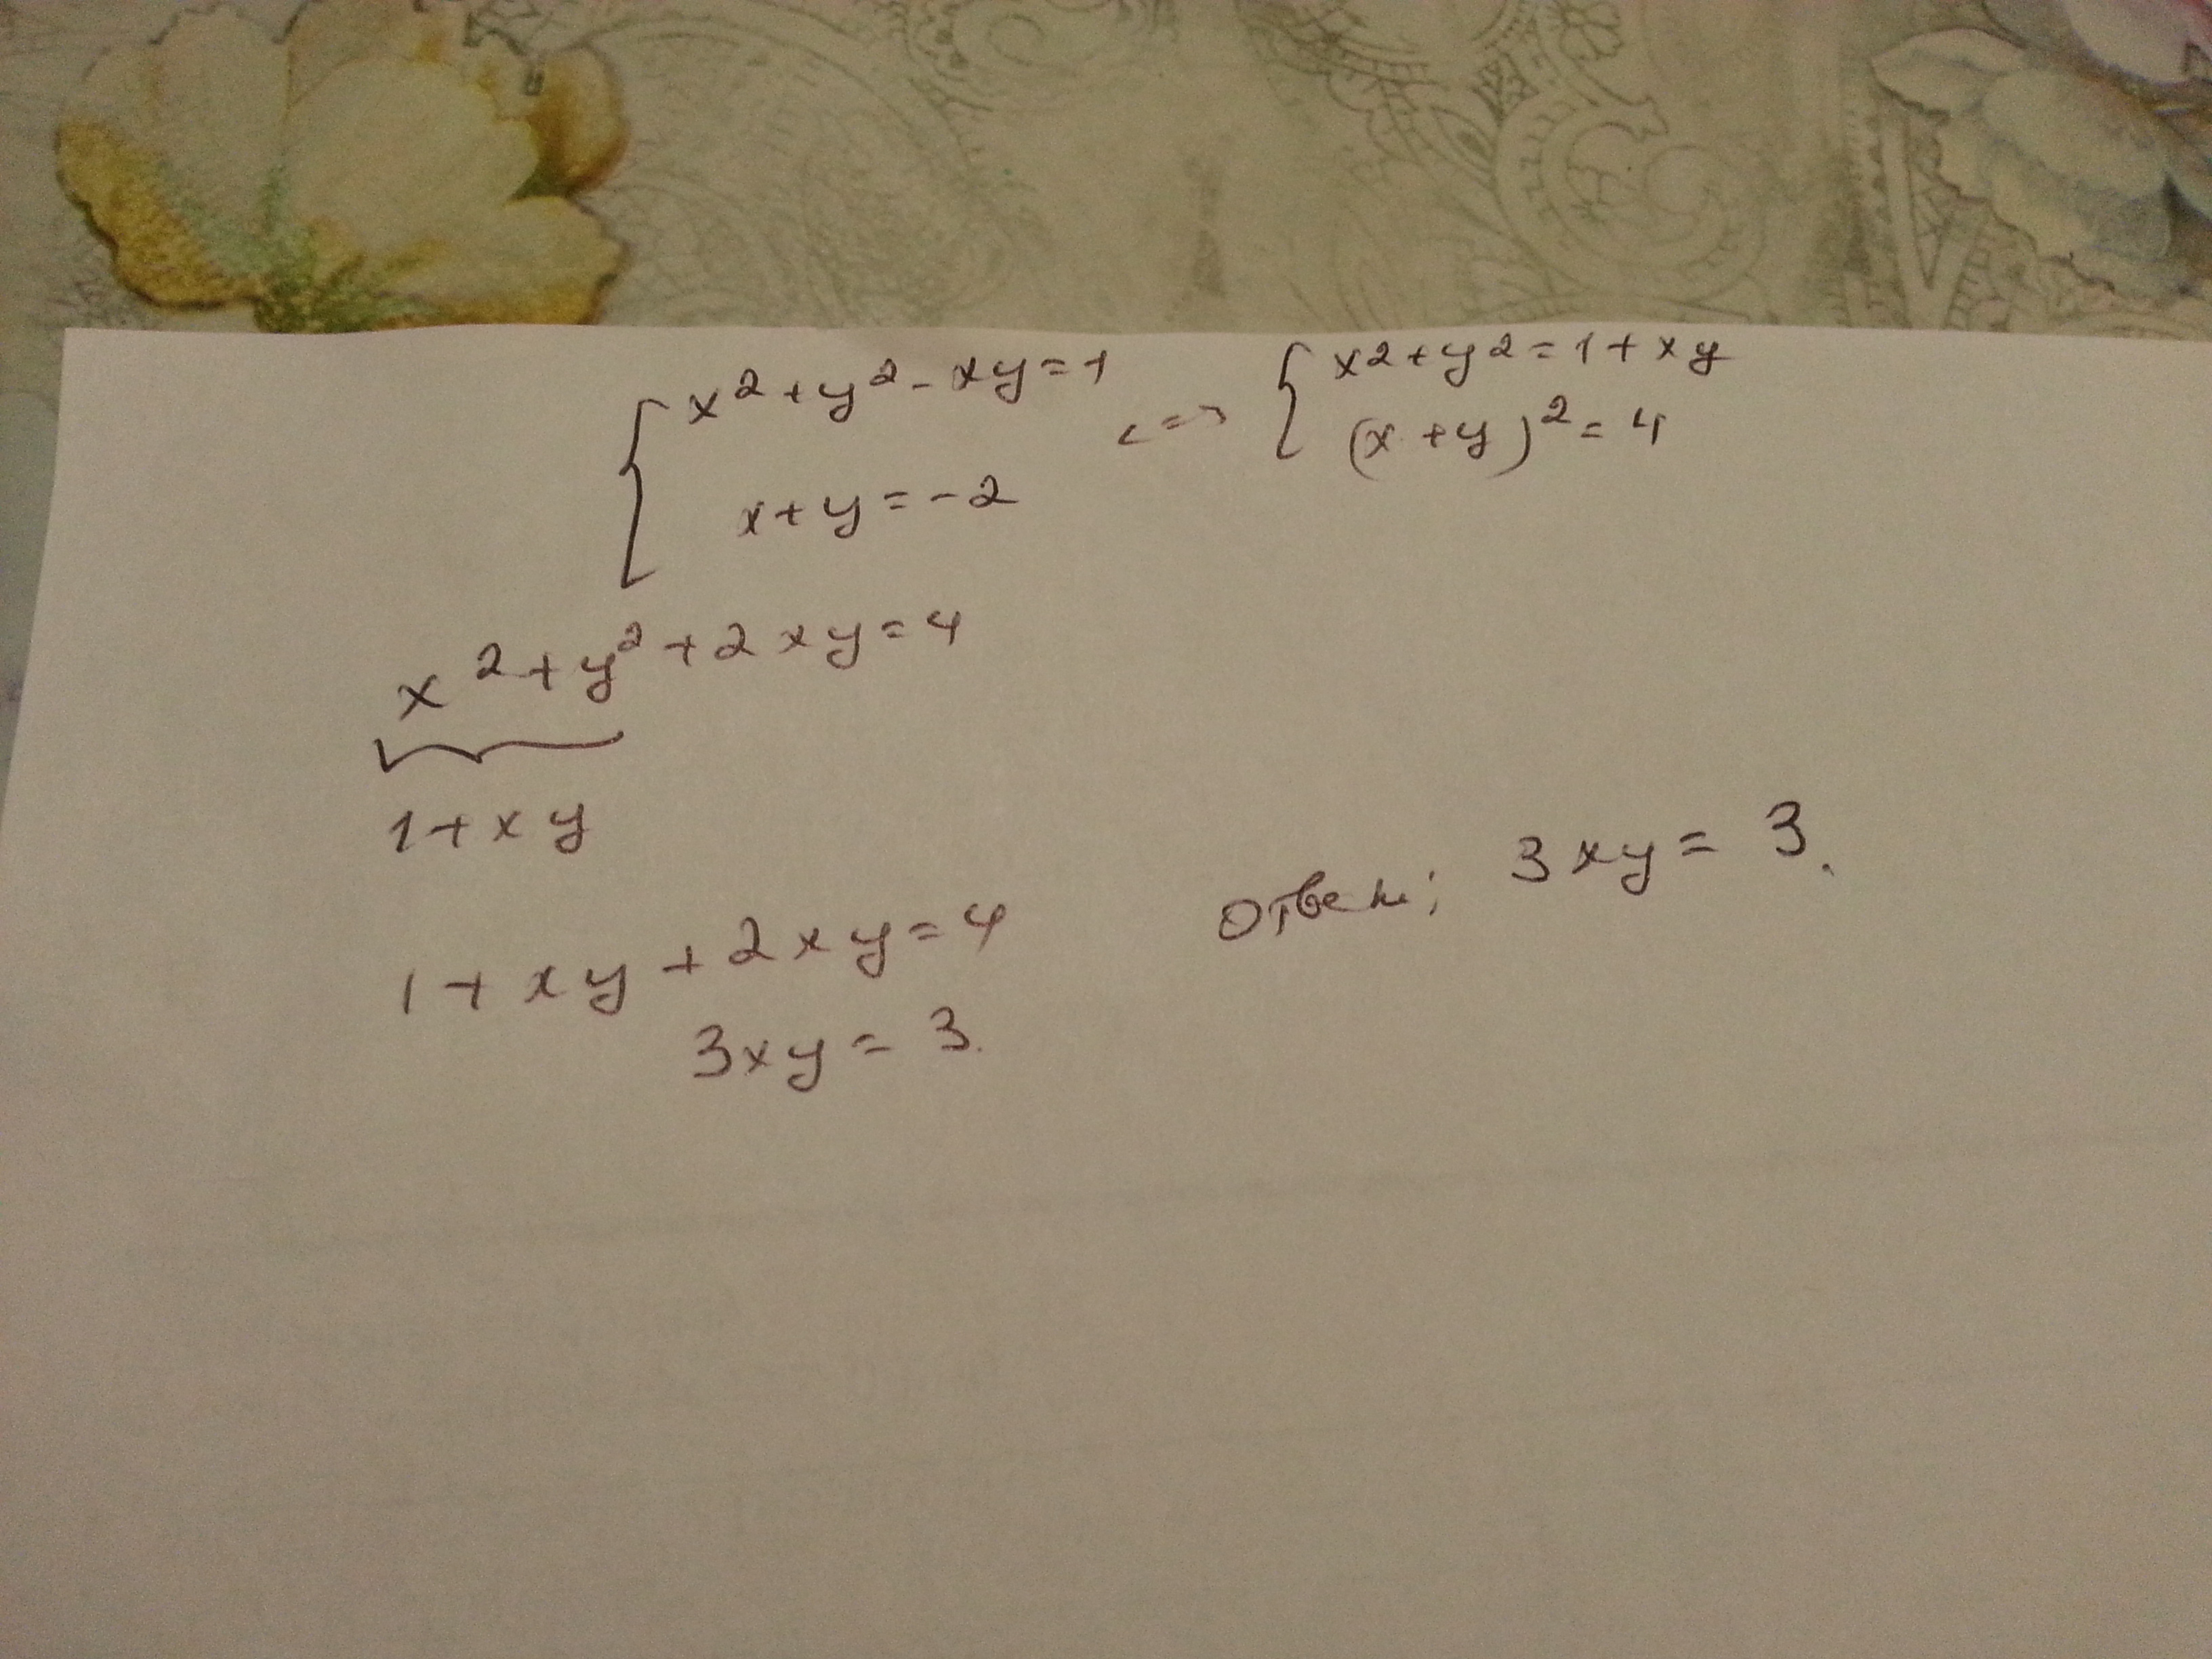 x²+y²-xy=1 <=> x2+y2=1+xy
x+y=-2 (x+y)²=4
x²+y²+2xy=4
1+xy
1+xy+2xy=4
3xy=3.
Ответ: 3xy=3.